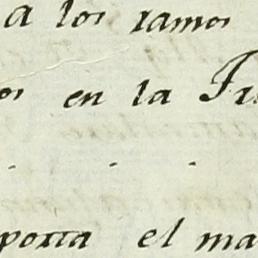 a los ramos
os en la
porta el ma